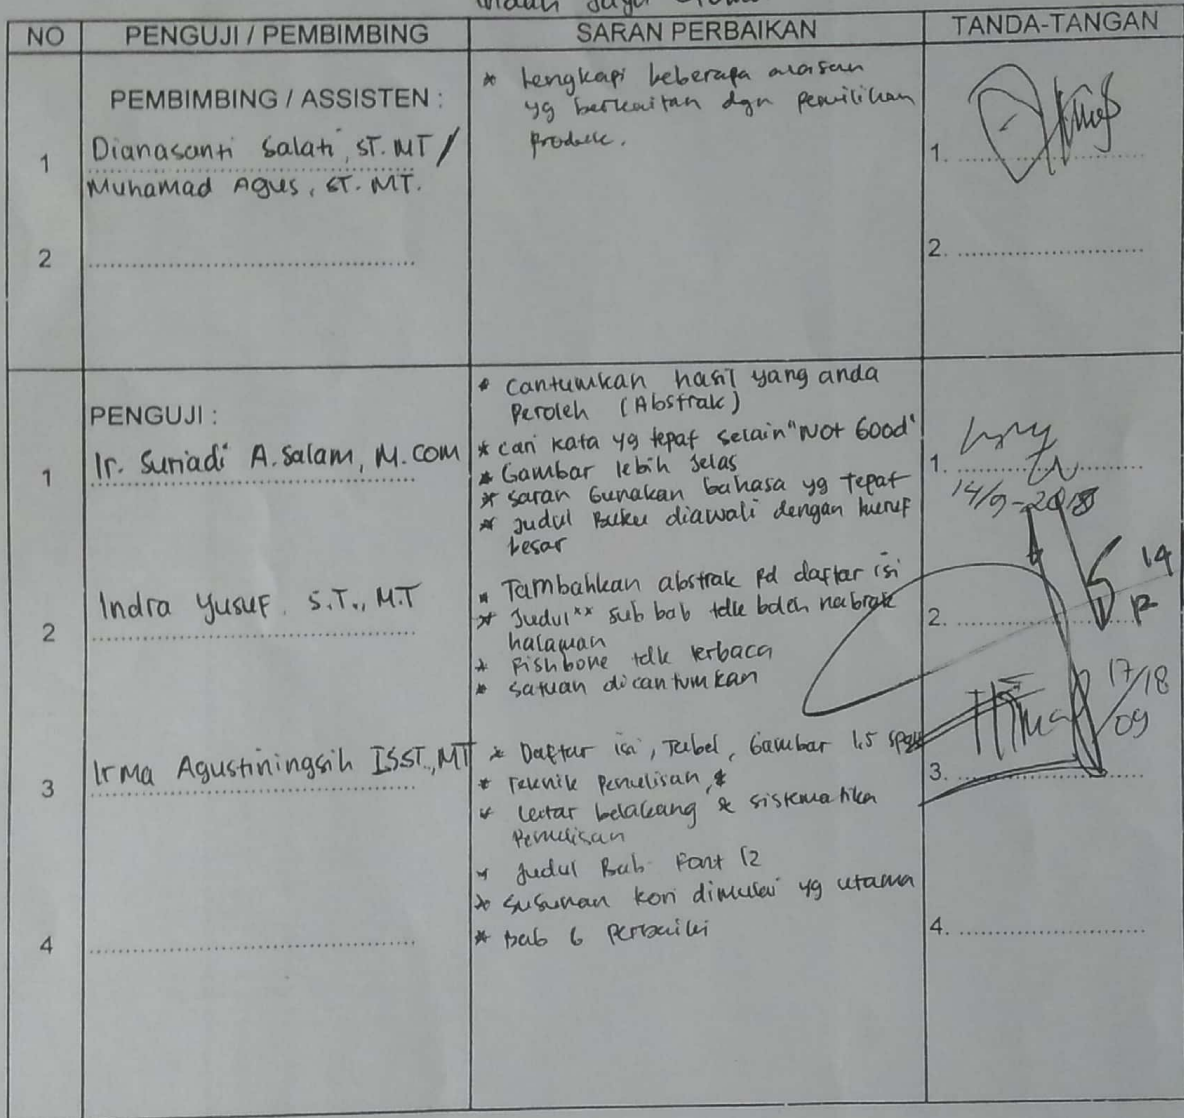 NO PENGUJI / PEMBIMBING SARAN PERBAIKAN TANDA-TANGAN
PEMBIMBING / ASSISTEN :
1 Dianasanti Salati, ST. MT /
Muhamad Agus, ST. MT.
2
* Lengkapi beberapa alasan
yg berkaitan dgn pemilihan
produk.
1.
2.
PENGUJI :
1 Ir. Suriadi A. Salam, M. COM
* Cantumkan hasil yang anda
Peroleh (Abstrak)
* cari kata yg tepat selain "Not Good"
* Gambar lebih Jelas
* saran Gunakan bahasa yg tepat
* Judul Buku diawali dengan huruf
besar
1.
14/9-2018
2 Indra Yusuf S.T., M.T
* Tambahkan abstrak pd daftar isi
* Judul** sub bab tdk boleh nabrak
halaman
* Fishbone tdk terbaca
* Satuan dicantumkan
2.
14
3 Irma Agustiningsih ISST., MT
* Daftar isi, Tabel, Gambar 1,5 spasi
* Teknik Penulisan,
* Latar belakang & sistematika
Penulisan
* Judul Bab Font 12
* Susunan kori dimulai yg utama
* Bab 6 Perbaiki
17/18
09
3.
4
4.